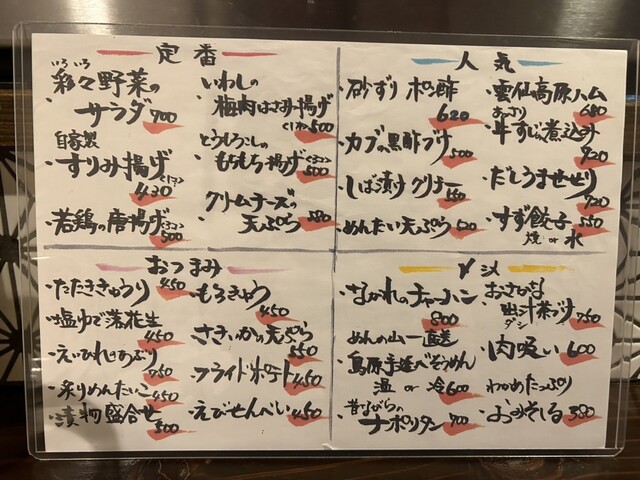 定番
いろいろ
・彩々野菜の
サラダ 700
自家製
・すりみ揚げ
430
・若鶏の唐揚げ
500
・いわしの
梅肉はさみ揚げ
500
・とうもろこしの
もちもち揚げ
500
・クリームチーズの
天ぷら 580
人気
・砂ずりポン酢
620
・カブの黒酢づけ
500
・しば漬けクリチー
550
・めんたい天ぷら 620
・雲仙高原ハム
680
あっさり
・牛すじの煮込み
720
・だしうませせり
720
・すず餃子 550
焼 or 水
おつまみ
・たたききゅうり 450
・塩ゆで落花生
450
・えいひれあぶり
750
・炙りめんたいこ 450
・漬物盛合せ
500
・もろきゅう
450
・さきいかの天ぷら
550
・フライドポテト 450
・えびせんべい 450
メシ
・ながれのチャーハン
800
めんの山一直送
・島原手延べそうめん
温 or 冷 600
昔ながらの
・ナポリタン 700
おさかな
・出汁茶づけ 750
ダシ
・肉吸い 600
わかめたっぷり
・おみそしる 380